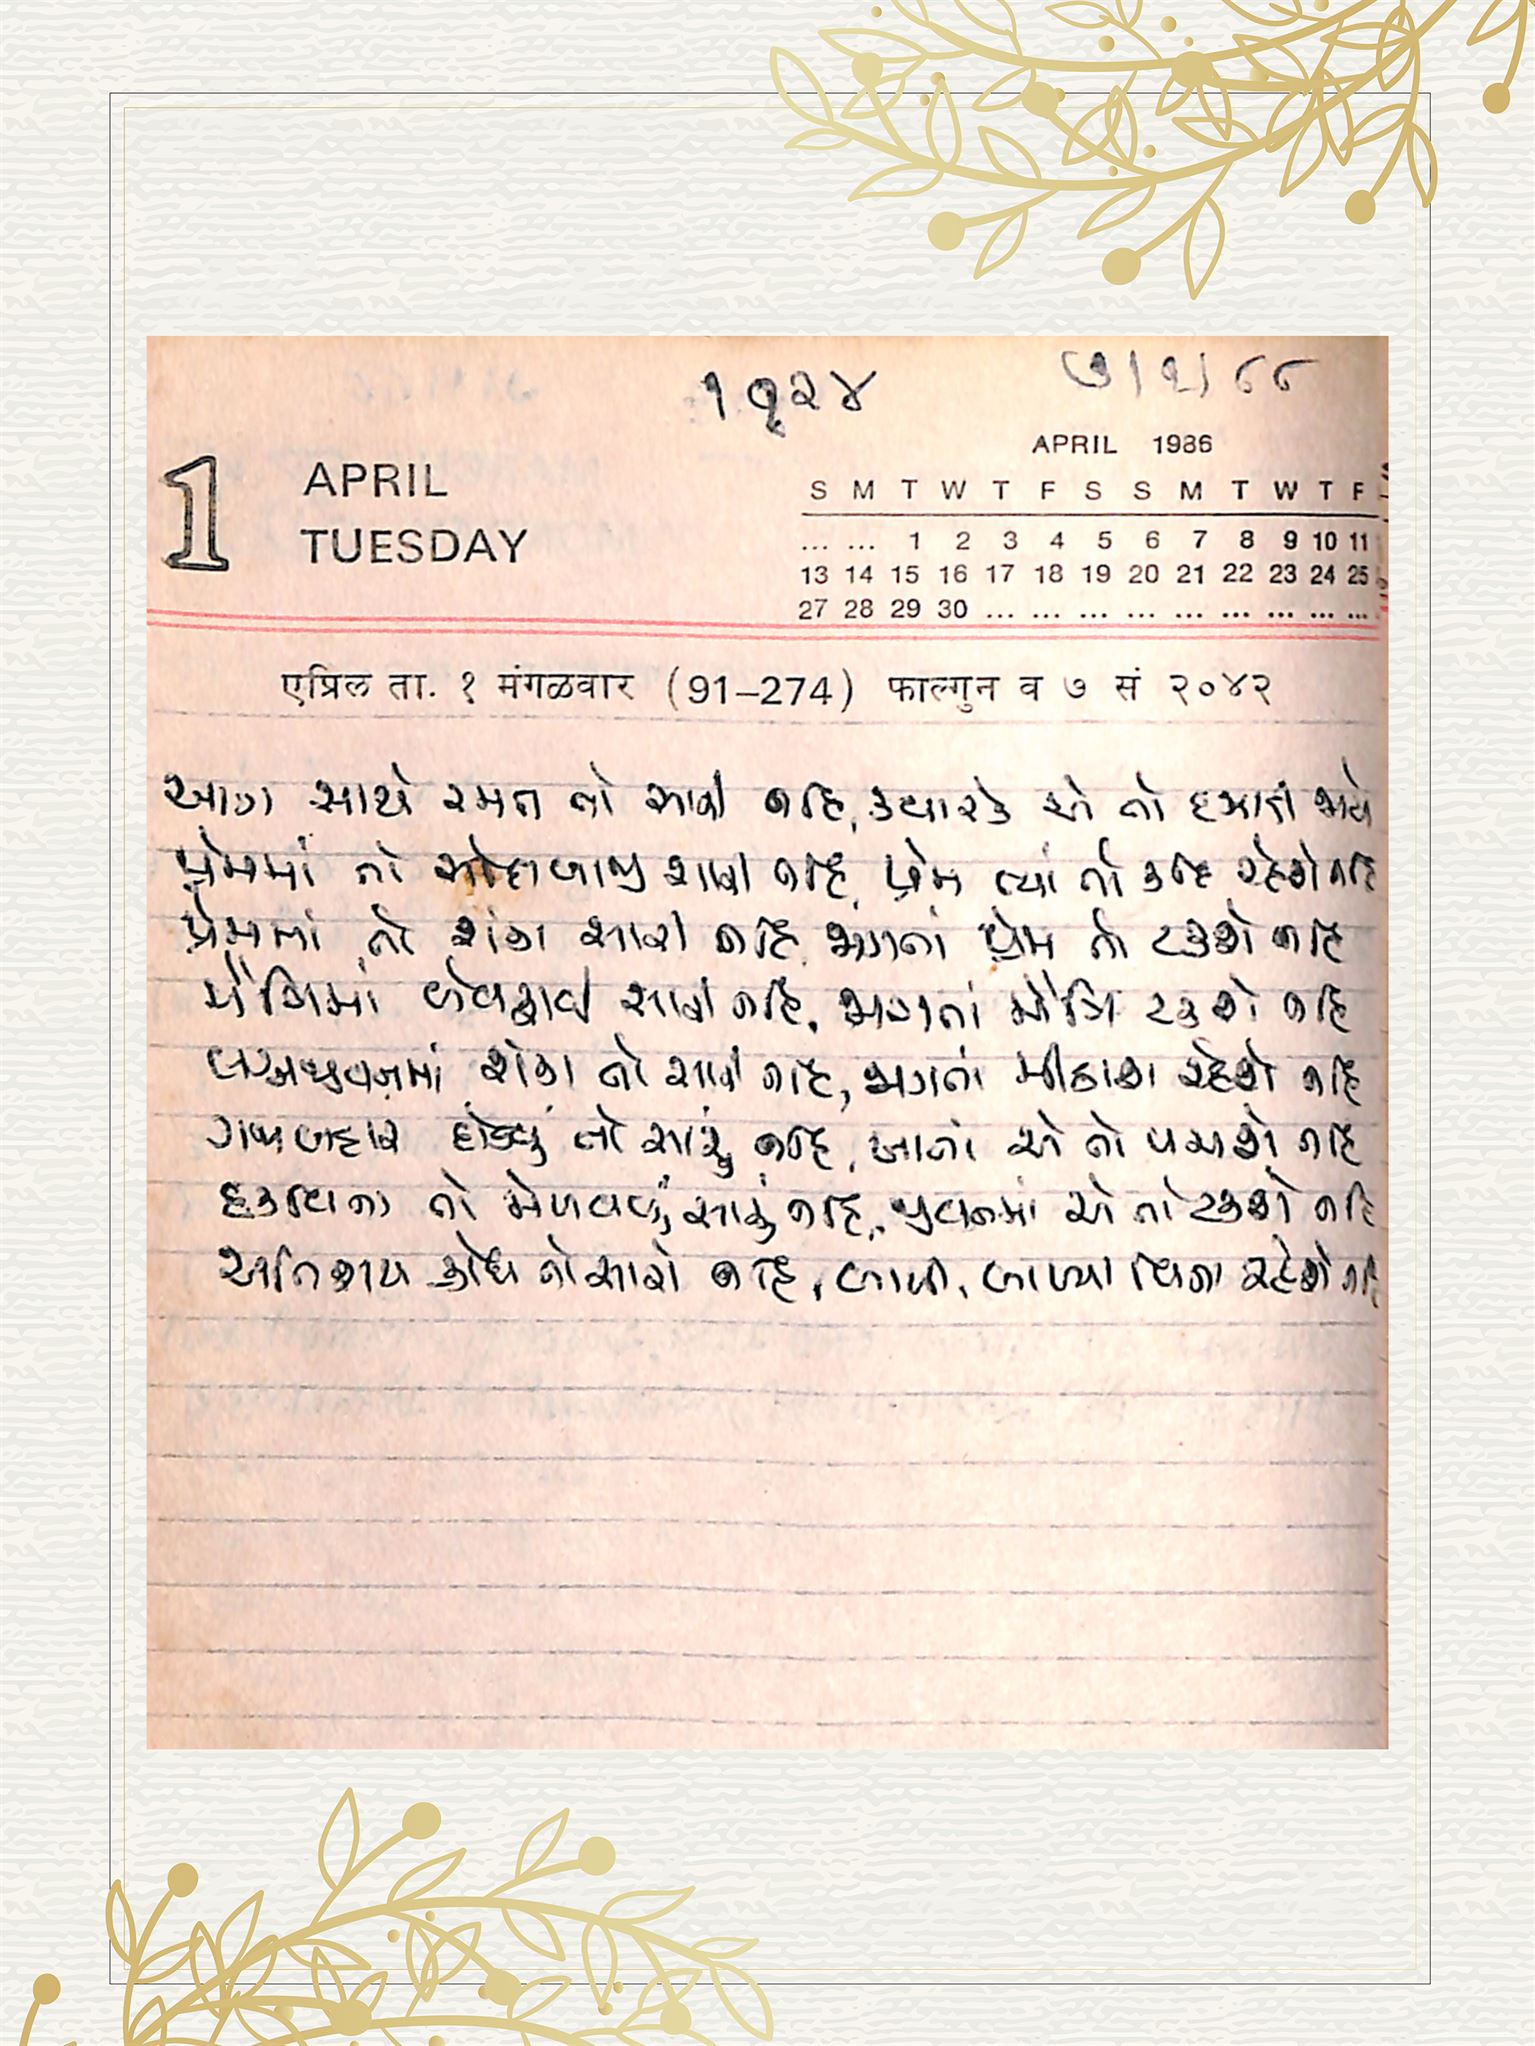 ૧૧૨૪
૭।૧। ૮૮
APRIL 1986
1 APRIL
TUESDAY
S M T W T F S S M T W T F
... ... 1 2 3 4 5 6 7 8 9 10 11
13 14 15 16 17 18 19 20 21 22 23 24 25
27 28 29 30 ... ... ... ... ... ... ... ... ...
एप्रिल ता. १ मंगळवार (91–274) फाल्गुन व ७ सं २०४२
આગ સાથે રમત તો સારી નહિ, ક્યારે એ તો
પ્રેમમાં તો સારી નહિ, પ્રેમ ત્યાં તો રહેશે નહિ
પ્રેમમાં તો શંકા સારી નહિ, પ્રેમ તો ટકશે નહિ
મૈત્રિમાં બેવફાઈ સારી નહિ, જાગતાં મૈત્રિ ટકશે નહિ
લગ્નજીવનમાં શંકા તો સારી નહિ, જાગતાં મીઠાશ રહેશે નહિ
ગજા બહાર તો સારું નહિ, ખાતાં એ તો પચશે નહિ
હકવિના તો મેળવવું સારું નહિ, જીવનમાં એ તો ટકશે નહિ
અતિશય ક્રોધ તો સારો નહિ, બાળી, બાળ્યા વિના રહેશે નહિ